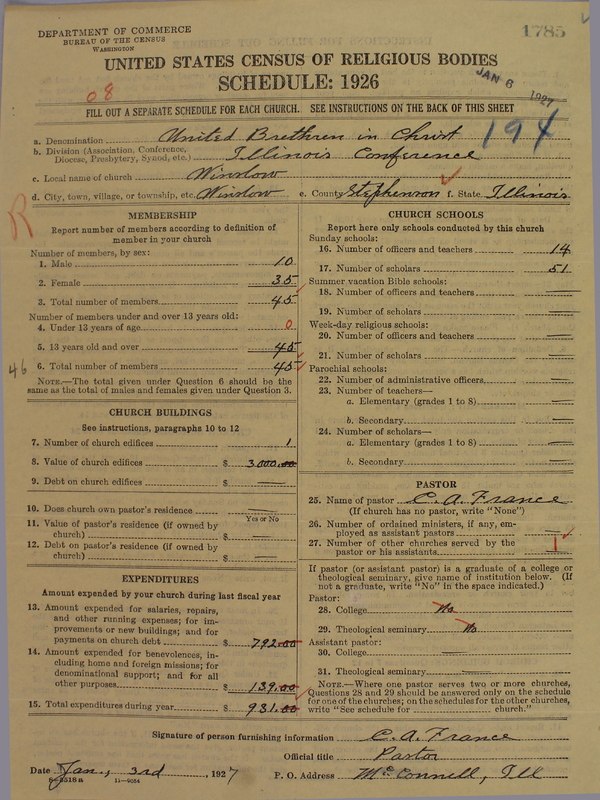 DEPARTMENT OF COMMERCE
BUREAU OF THE CENSUS
WASHINGTON
1785
UNITED STATES CENSUS OF RELIGIOUS BODIES
SCHEDULE: 1926
JAN 6 1927
08
FILL OUT A SEPARATE SCHEDULE FOR EACH CHURCH. SEE INSTRUCTIONS ON THE BACK OF THIS SHEET
194
a. Denomination United Brethren in Christ
b. Division (Association, Conference, Diocese, Presbytery, Synod, etc.) Illinois Conference
c. Local name of church Winslow
d. City, town, village, or township, etc. Winslow e. County Stephenson f. State Illinois
R
MEMBERSHIP
Report number of members according to definition of
member in your church
Number of members, by sex:
1. Male 10
2. Female 35
3. Total number of members 45
Number of members under and over 13 years old:
4. Under 13 years of age 0
5. 13 years old and over 45
46
6. Total number of members 45
NOTE.—The total given under Question 6 should be
same as the total of males and females given under Question 3.
CHURCH BUILDINGS
See instructions, paragraphs 10 to 12
7. Number of church edifices 1
8. Value of church edifices $ 3000.00
9. Debt on church edifices $ —
10. Does church own pastor's residence? —
Yes or No
11. Value of pastor's residence (if owned by
church) $ —
12. Debt on pastor's residence (if owned by
church) $ —
EXPENDITURES
Amount expended by your church during last fiscal year
13. Amount expended for salaries, repairs,
and other running expenses; for im-
provements or new buildings; and for
payments on church debt $ 792.00
14. Amount expended for benevolences, in-
cluding home and foreign missions; for
denominational support; and for all
other purposes $ 139.00
15. Total expenditures during year $ 931.00
CHURCH SCHOOLS
Report here only schools conducted by this church
Sunday schools:
16. Number of officers and teachers 14
17. Number of scholars 51
Summer vacation Bible schools:
18. Number of officers and teachers —
19. Number of scholars —
Week-day religious schools:
20. Number of officers and teachers —
21. Number of scholars —
Parochial schools:
22. Number of administrative officers —
23. Number of teachers—
a. Elementary (grades 1 to 8) —
b. Secondary —
24. Number of scholars—
a. Elementary (grades 1 to 8) —
b. Secondary —
PASTOR
25. Name of pastor C. A. France
(If church has no pastor, write "None")
26. Number of ordained ministers, if any, em-
ployed as assistant pastors —
27. Number of other churches served by the
pastor or his assistants 1
If pastor (or assistant pastor) is a graduate of a college or
theological seminary, give name of institution below. (If
not a graduate, write "No" in the space indicated.)
Pastor:
28. College No
29. Theological seminary No
Assistant pastor:
30. College —
31. Theological seminary —
NOTE.—Where one pastor serves two or more churches,
Questions 28 and 29 should be answered only on the schedule
for one of the churches; on the schedules for the other churches,
write "See schedule for church."
Signature of person furnishing information C. A. France
Official title Pastor
Date Jan, 3rd, 1927 P. O. Address McConnell, Ill
8—5518a 11—9054